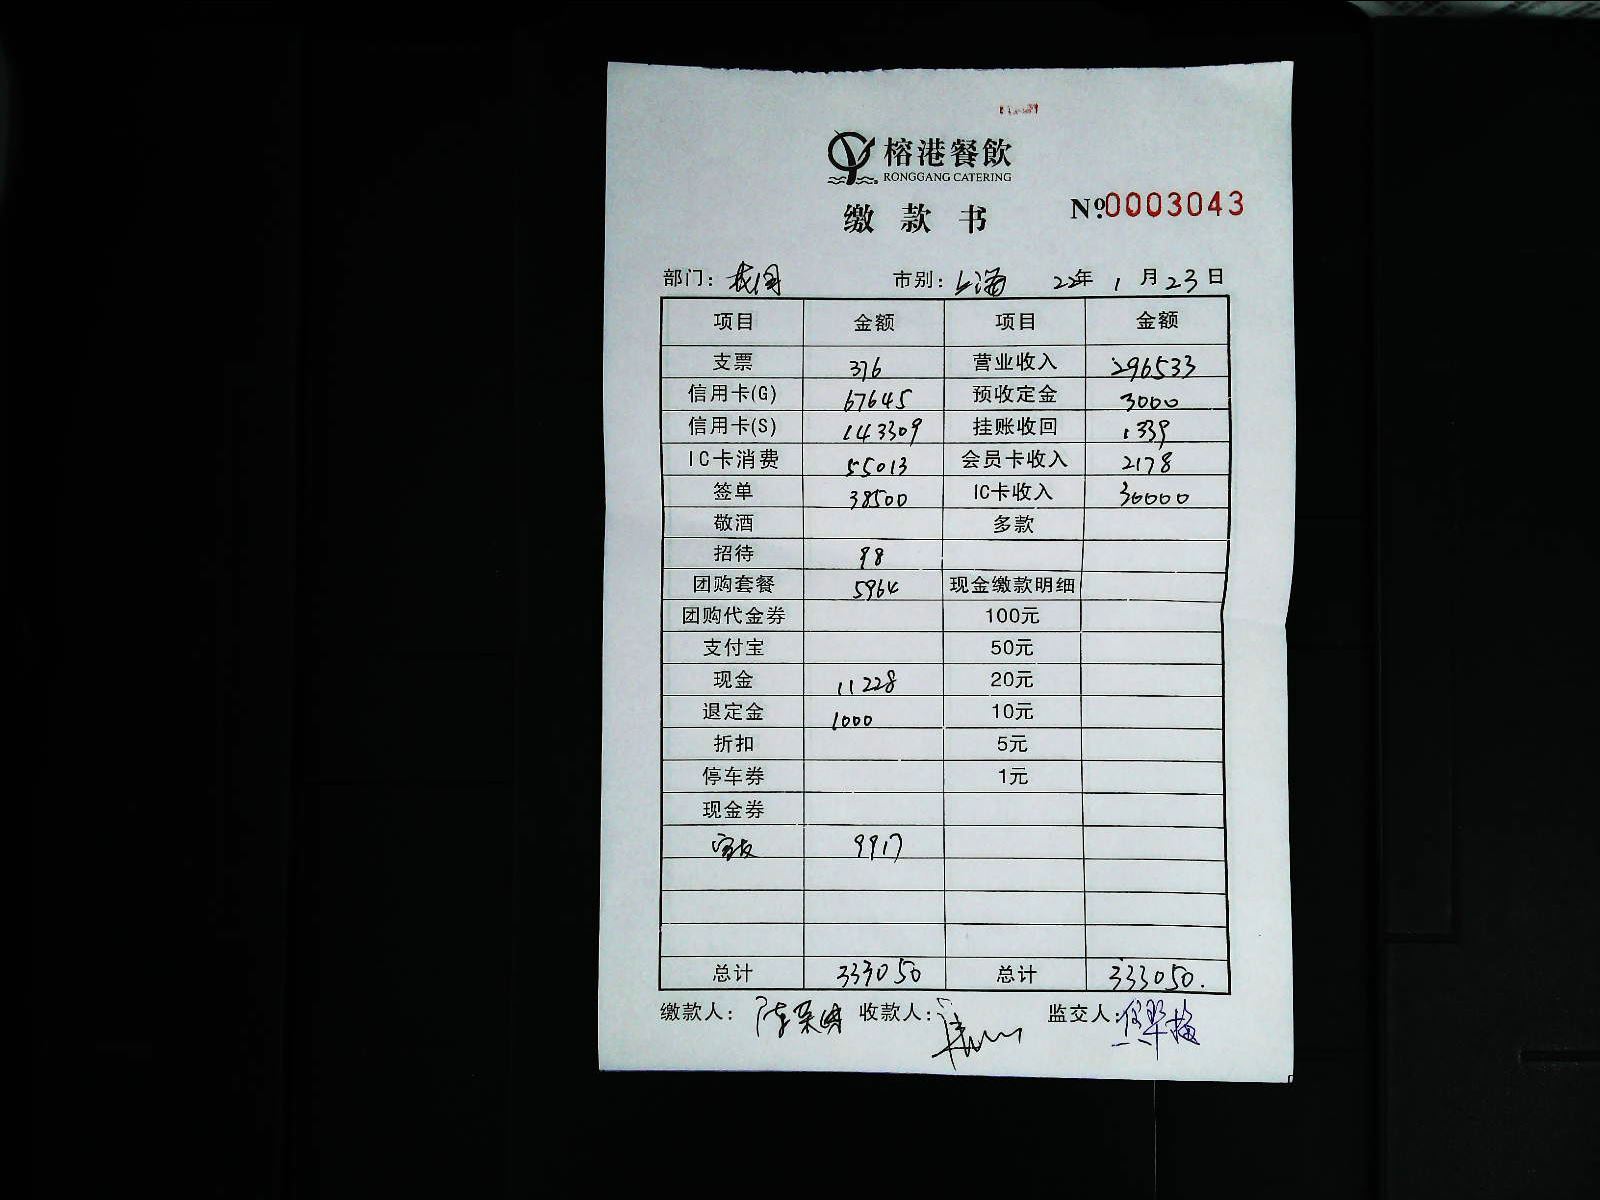 榕港餐飲
RONGGANG CATERING
缴款书 №0003043
部门： 市别：上海 22年 1月23日
项目 金额 项目 金额
支票 376 营业收入 296533
信用卡(G) 67645 预收定金 3000
信用卡(S) 143309 挂账收回 1339
IC卡消费 55013 会员卡收入 2178
签单 38500 IC卡收入 30000
敬酒 多款
招待 98
团购套餐 5964 现金缴款明细
团购代金券 100元
支付宝 50元
现金 11228 20元
退定金 1000 10元
折扣 5元
停车券 1元
现金券
9917
总计 333050 总计 333050.
缴款人： 收款人： 监交人：